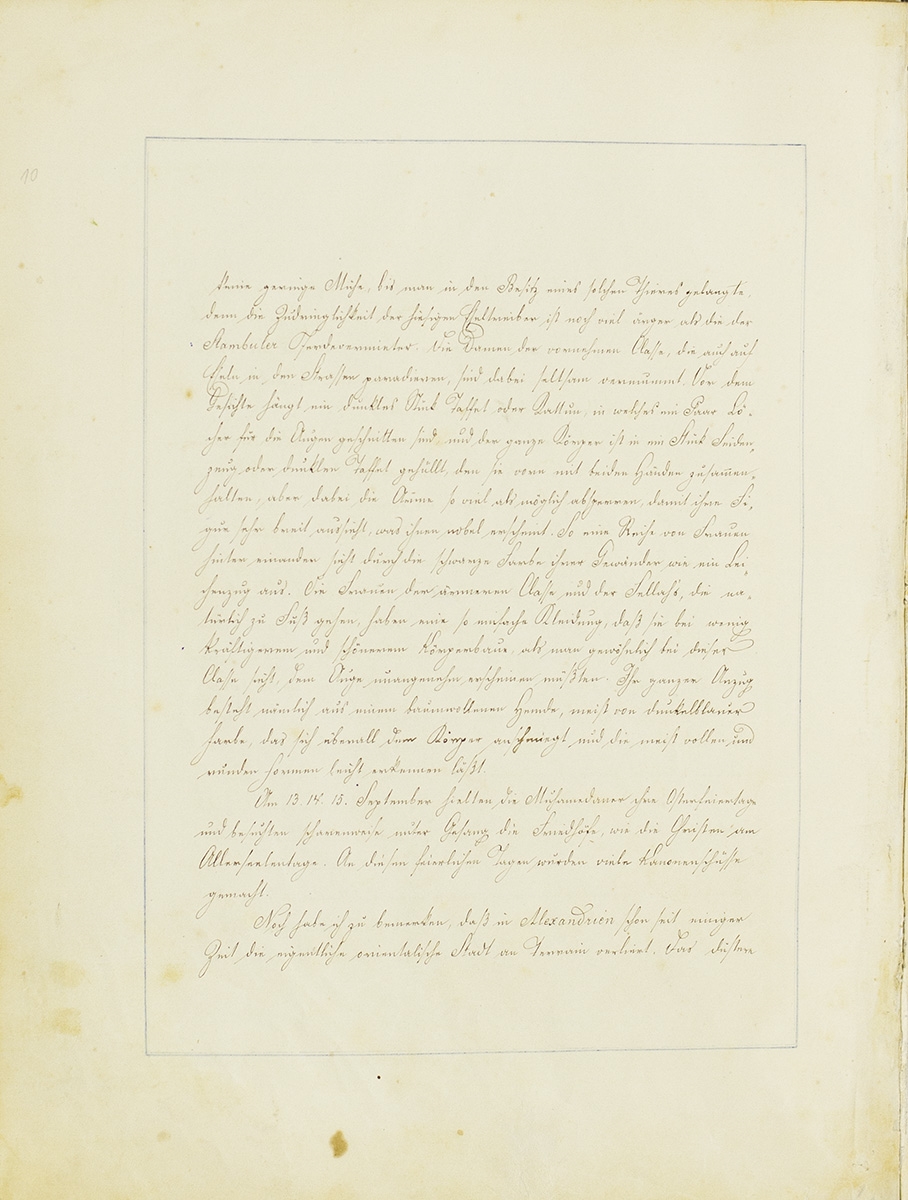 10
keine geringe Mühe, bis man in den Besitz eines solchen Thieres gelangte,
denn die Zudringlichkeit der hiesigen Eseltreiber ist noch viel ärger als die der
Stambuler Pferdevermieter. Die Damen der vornehmen Classe, die auch auf
Eseln in den Strassen paradieren, sind dabei seltsam vermummt. Vor dem
Gesichte hängt ein dunkles Stük Taffet oder Kattun, in welches ein Paar Lö-
cher für die Augen geschnitten sind, und der ganze Körper ist in ein Stük Seiden-
zeug oder dunklen Taffet gehüllt, den sie vorn mit beiden Händen zusam̅en-
halten, aber dabei die Arme so viel als möglich absperren, damit ihre Fi-
gur sehr breit aussieht, was ihnen nobel erscheint. So eine Reihe von Frauen
hinter einander sieht durch die schwarze Farbe ihrer Gewänder wie ein Lei-
chenzug aus. Die Frauen der ärmeren Classe und der Fellah's, die na-
türlich zu Fuß gehen, haben eine so einfache Kleidung, daß sie bei wenig
kräftigerem und schönerem Körperbaue, als man gewöhnlich bei dieser
Classe sieht, dem Auge unangenehm erscheinen müßten. Ihr ganzer Anzug
besteht nämlich aus einem baumwollenen Hemde, meist von dunkelblauer
Farbe, das sich überall dem Körper anschmiegt und die meist vollen und
runden Formen leicht erkennen läßt.
Am 13. 14. 15. September hielten die Muhamedaner ihre Osterfeiertage
und besuchten scharenweise unter Gesang die Friedhöfe, wie die Christen am
Allerseelentage. An diesen feierlichen Tagen wurden viele Kanonenschüsse
gemacht.
Noch habe ich zu bemerken, daß in Alexandrien schon seit einiger
Zeit die eigentliche orientalische Stadt an Terrain verliert. Das düstere